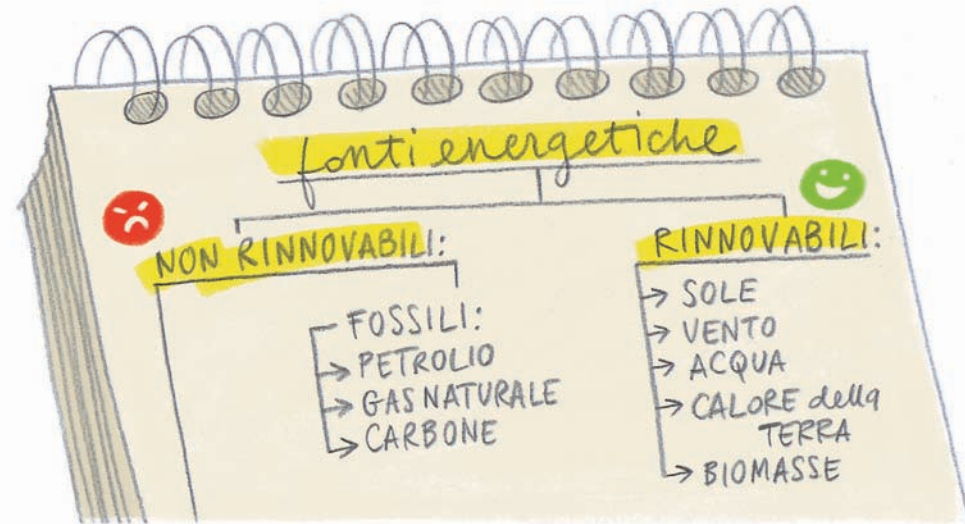 fonti energetiche
NON RINNOVABILI:
FOSSILI:
PETROLIO
GAS NATURALE
CARBONE
RINNOVABILI:
SOLE
VENTO
ACQUA
CALORE della
TERRA
BIOMASSE